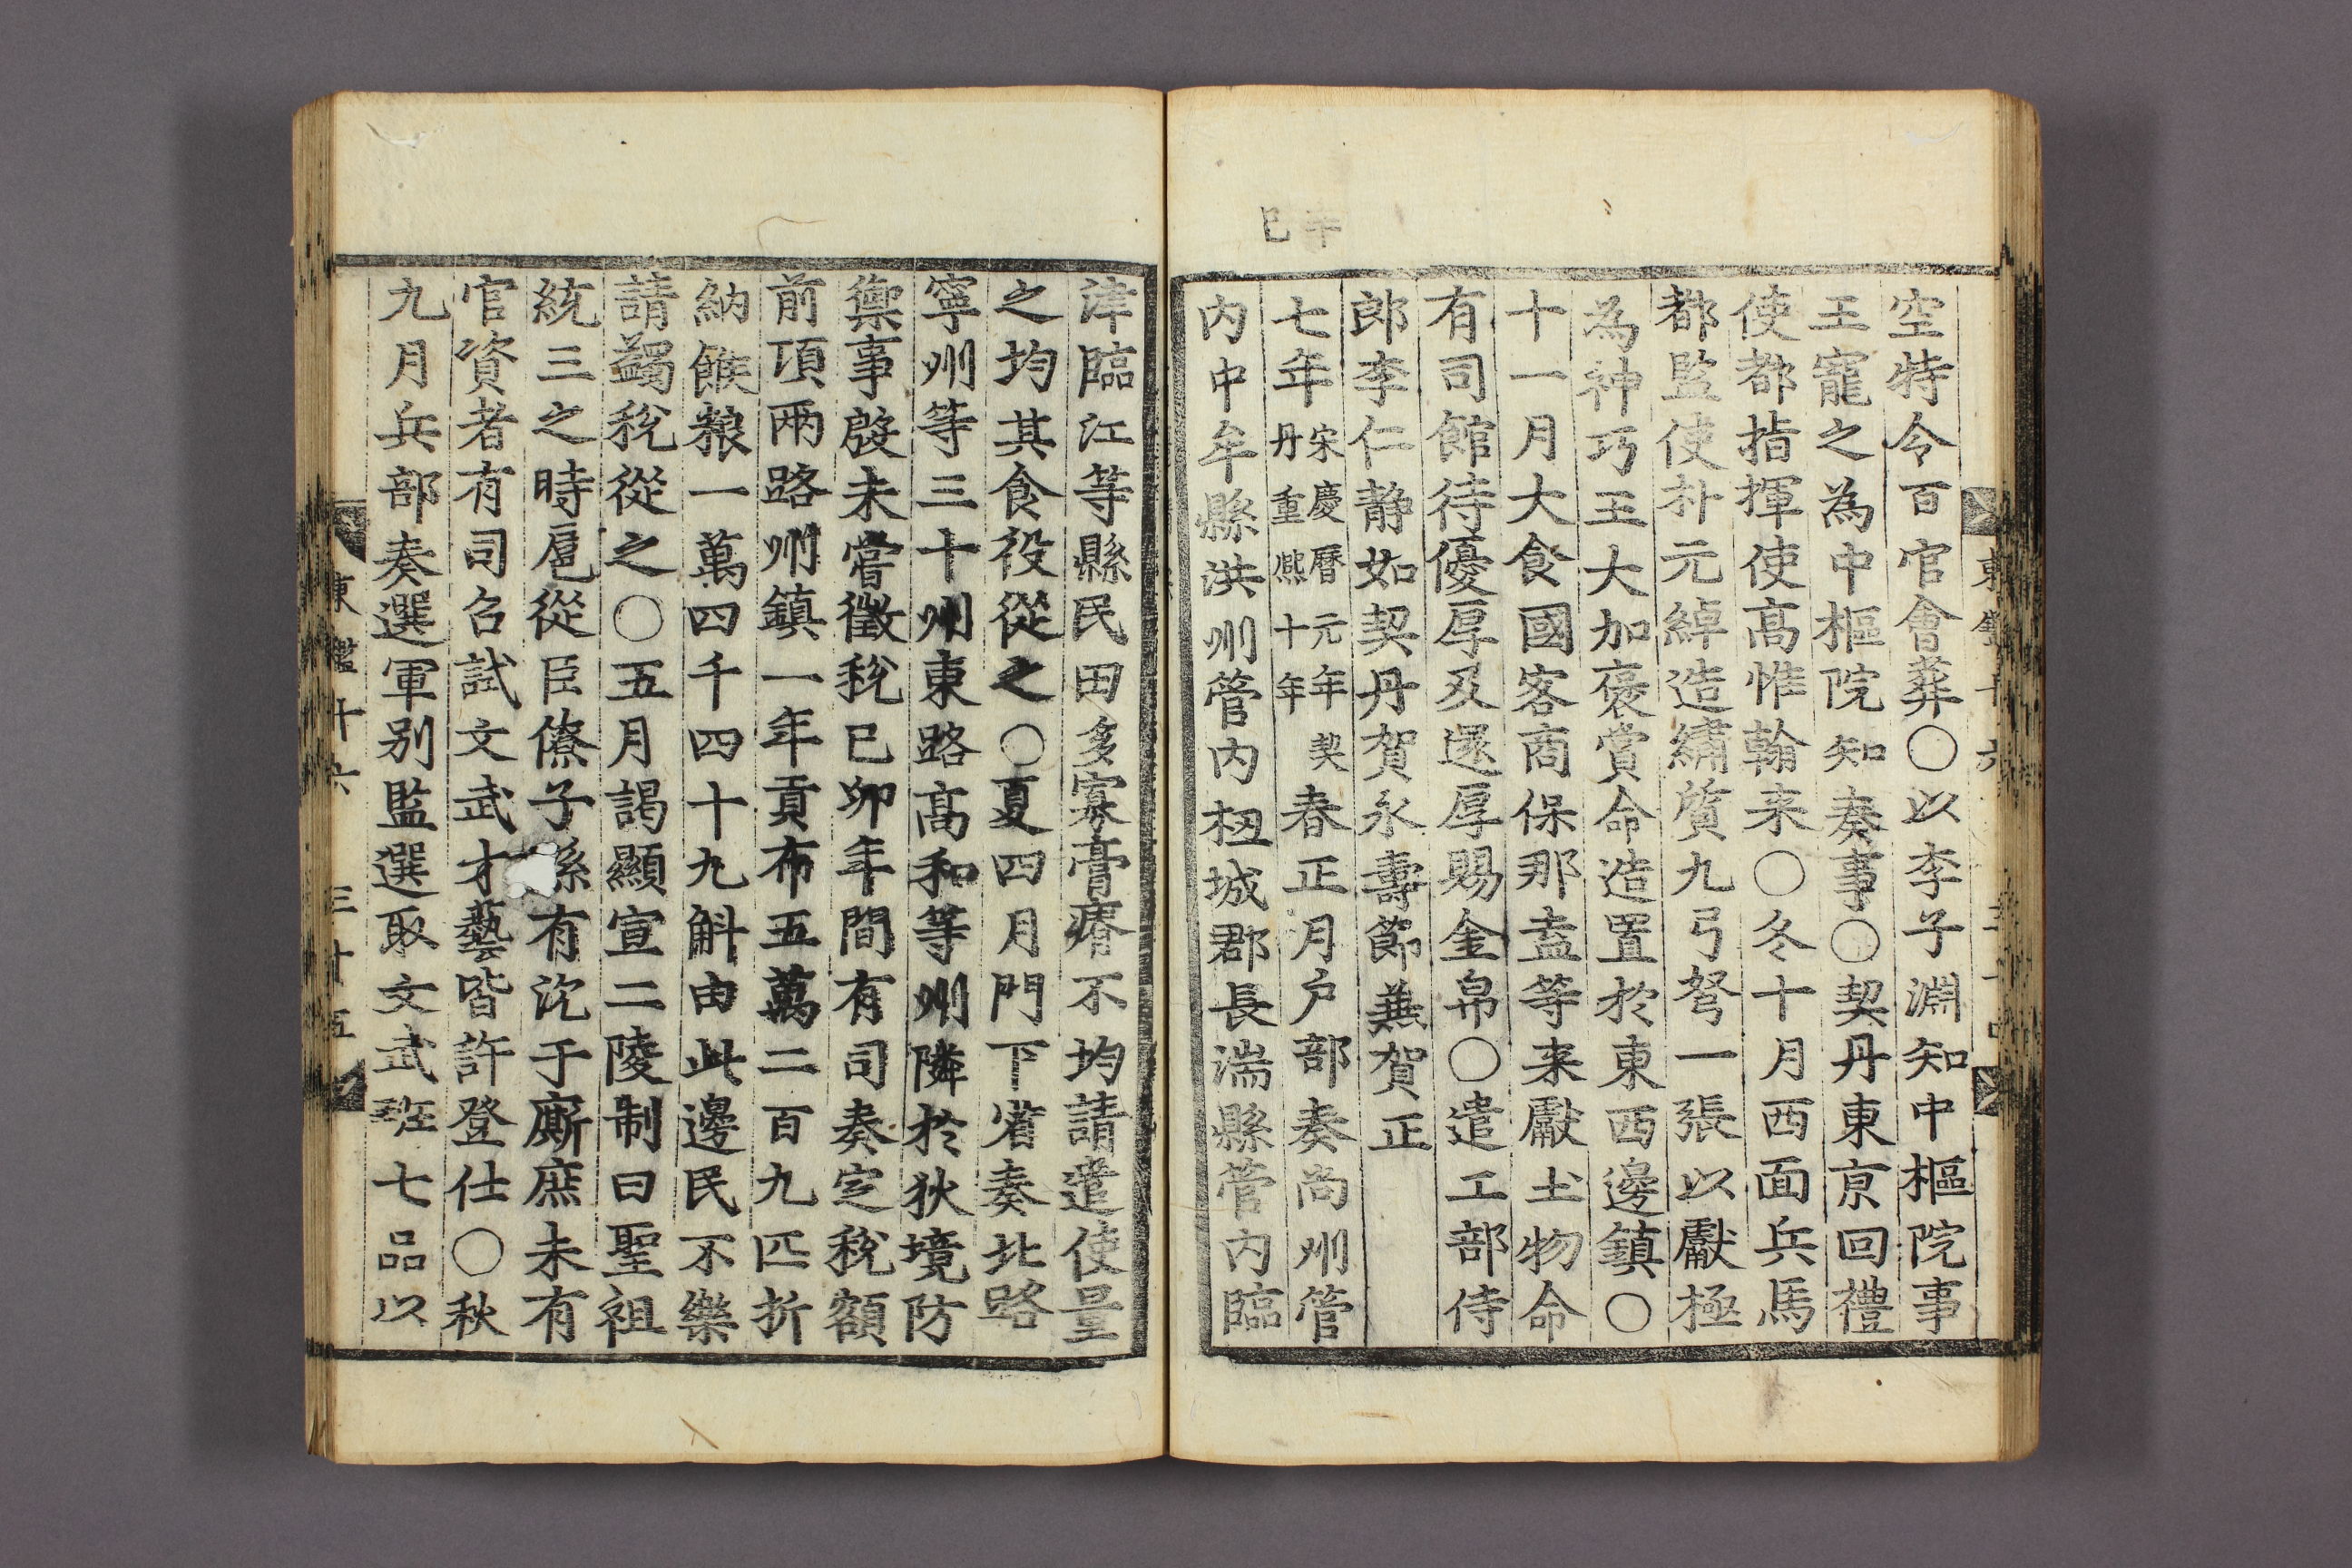 辛巳
空特令百官會葬○以李子淵知中樞院事
王寵之為中樞院知奏事○契丹東京回禮
使都指揮使高惟翰来○冬十月西面兵馬
都監使朴元綽造繡質九弓弩一張以獻極
為神巧王大加褒賞命造置於東西邊鎮○
十一月大食國客商保那盍等来獻土物命
有司館待優厚及還厚賜金帛○遣工部侍
郎李仁静如契丹賀永壽節兼賀正
七年宋慶曆元年契丹重熈十年春正月戶部奏尚州管
内中牟縣洪州管内杻城郡長湍縣管内臨
津臨江等縣民田多寡膏瘠不均請遣使量
之均其食役從之○夏四月門下省奏北路
寧州等三十州東路高和等州隣於狄境防
禦事殷未嘗徵稅已卯年間有司奏定稅額
前項两路州鎮一年貢布五萬二百九匹折
納餱粮一萬四千四十九斛由此邊民不樂
請蠲稅從之○五月謁顯宣二陵制曰聖祖
統三之時扈從臣僚子孫有沈于廝庶未有
官資者有司召試文武才藝皆許登仕○秋
九月兵部奏選軍别監選取文武班七品以
東鑑十六 三十五